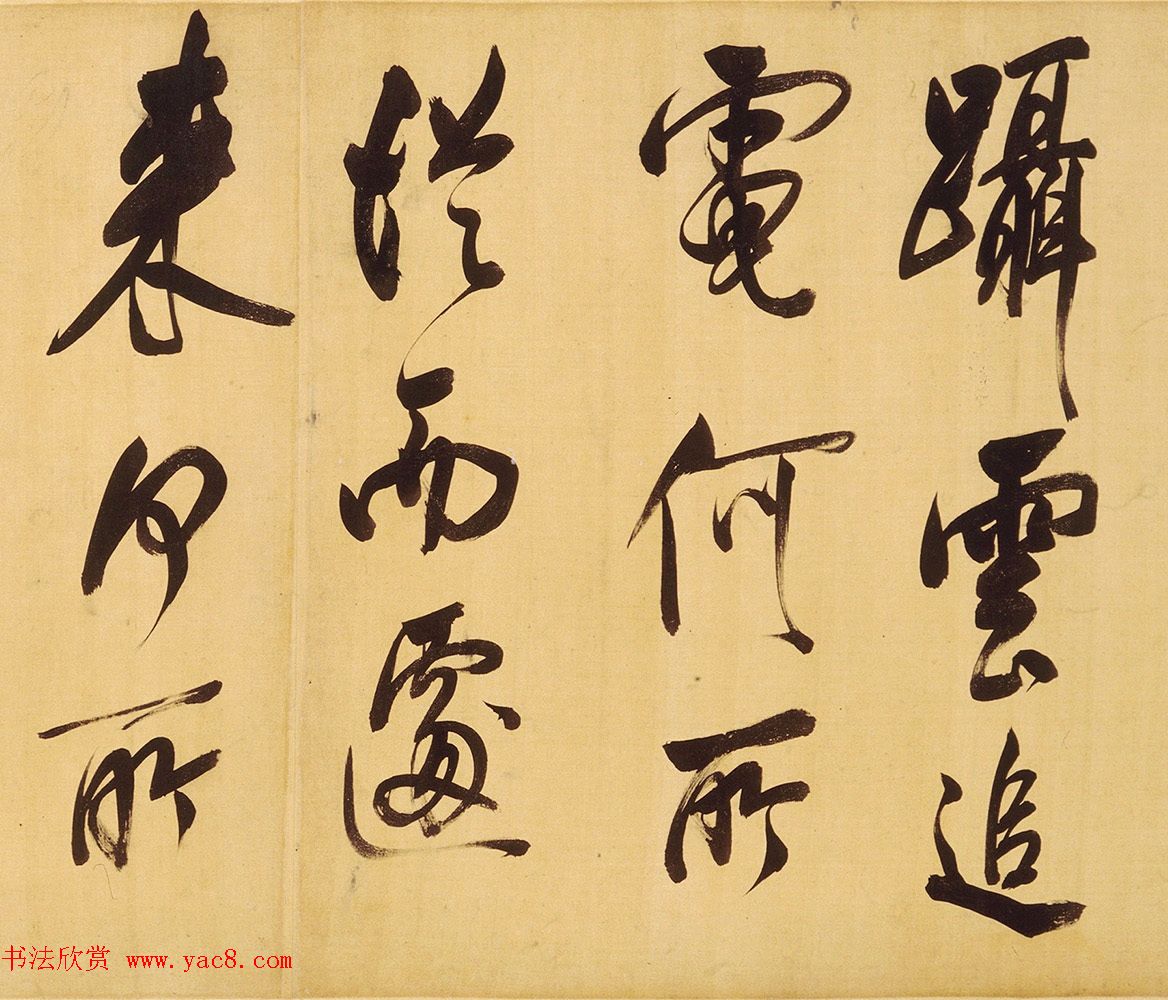 躡雲追
電何所
從而遽
来何所
书法欣赏 www.yac8.com